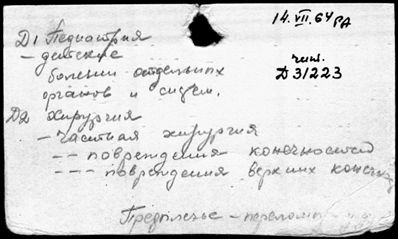 14. VII. 64 РА
Д1 Педиатрия
- детские
болезни отдельных
органов и систем.
чит.
Д31223
Д2 хирургия
- частная хирургия
-- повреждения конечностей
--- повреждения верхних конечн
Предплечье - переломы